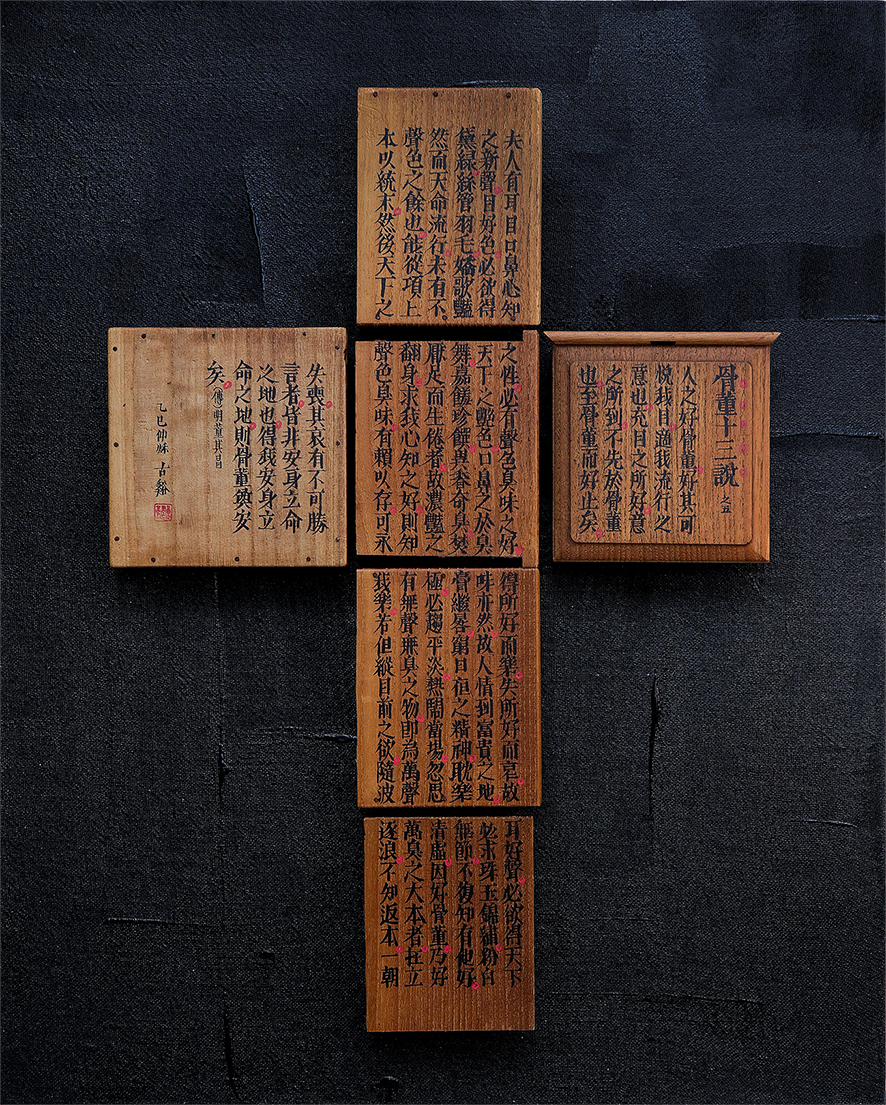 骨董十三說 之五
人之好骨董好其可
悅我目適我流行之
意也充目之所好意
之所到不先於骨董
也至骨董而好止矣
夫人有耳目口鼻心知
之性必有聲色臭味之好
得所好而樂失所好而哀故
耳好聲必欲得天下
之新聲目好色必欲得
天下之艷色口鼻之於臭
味亦然故人情到富貴之地
必求珠玉錦繡粉白
黛綠絲管羽毛嬌歌豔
舞嘉饈珍饌異香奇臭焚
膏繼晷窮日夜之精神耽樂
無節不復知有他好
然而天命流行未有不
厭足而生倦者故濃豔之
極必趨平淡熱鬧當場忽思
清虛因好骨董乃好
聲色之餘也能從項上
翻身求我心知之好則知
有無聲無臭之物即為萬聲
萬臭之大本者在立
本以統末然後天下之
聲色臭味有賴以存可永
我樂若但縱目前之欲隨波
逐浪不知返本一朝
失喪其哀有不可勝
言者皆非安身立命
之地也得我安身立
命之地則骨董奠安
矣(傳)明董其昌
乙巳仲秋 古谿